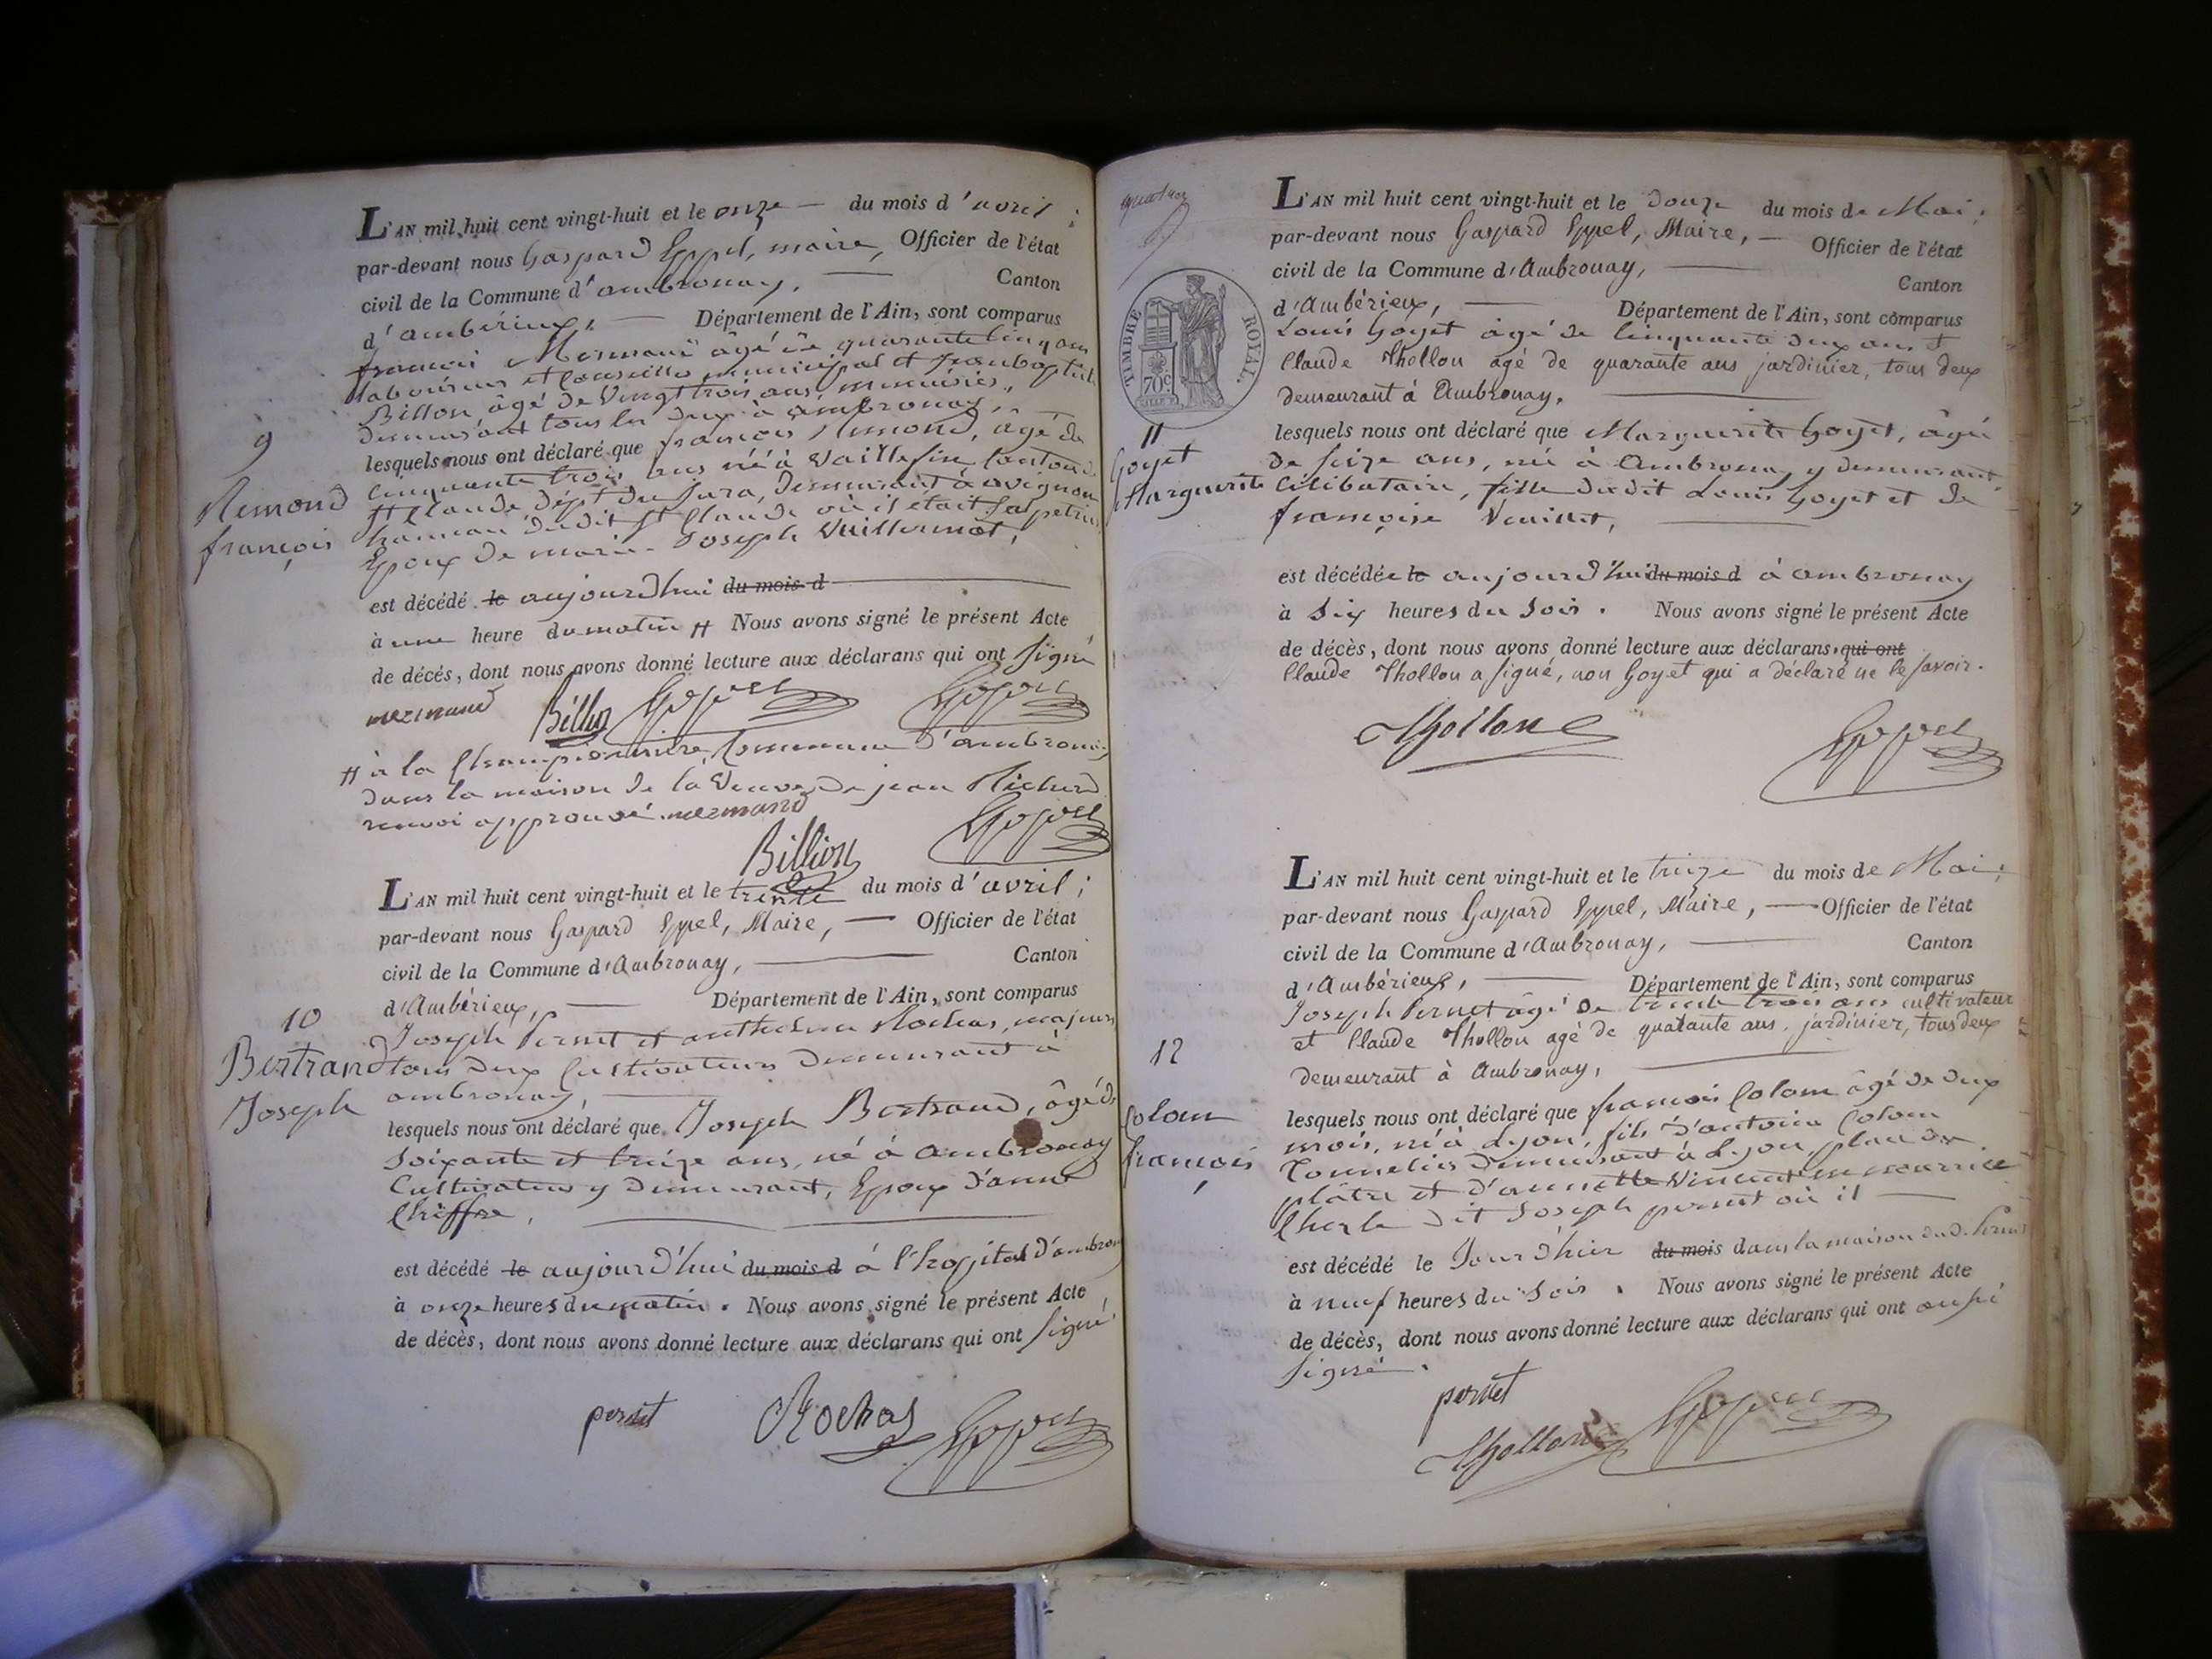 L'AN mil huit cent vingt-huit et le onze — du mois d'avril ;
par-devant nous Gaspard Eppel, maire, Officier de l'état
civil de la Commune d'ambronay, — Canton
d'ambérieux, — Département de l'Ain, sont comparus
françois âgé de quarante cinq ans
laboureur et Conseiller municipal et
Billon âgé de Vingt trois ans, menuisier,
demeurant tous les deux à ambronay,
9
Rémond
françois
lesquels nous ont déclaré que françois Rémond, âgé de
cinquante trois ans né à Vaillefin Canton de
St Claude dépt du Jura, demeurant à avignon
hameau dudit St Claude où il était
Epoux de marie-Joseph Vuillermot,
est décédé le aujourd'hui du mois d
à une heure du matin # Nous avons signé le présent Acte
de décès, dont nous avons donné lecture aux déclarans qui ont signé
mermand Billon Eppel Eppel
# à la Championnière, Commune d'ambronay,
dans la maison de la Veuve de jean Richerd
renvoi approuvé. mermand
Billion Eppel
L'AN mil huit cent vingt-huit et le trente du mois d'avril ;
par-devant nous Gaspard Eppel, Maire, — Officier de l'état
civil de la Commune d'Ambronay, — Canton
d'Ambérieux, — Département de l'Ain, sont comparus
10
Bertrand
Joseph
Joseph Pernet et anthelme Rochas, majeurs
tous deux Cultivateurs demeurant à
ambronay,
lesquels nous ont déclaré que Joseph Bertrand, âgé de
soixante et treize ans, né à Ambronay
Cultivateur y demeurant, Epoux d'anne
Chiffre,
est décédé le aujourd'hui du mois d à l'hopital d'ambronay
à onze heures du matin. Nous avons signé le présent Acte
de décès, dont nous avons donné lecture aux déclarans qui ont signé.
pernet Rochas Eppel
L'AN mil huit cent vingt-huit et le douze du mois de Mai ;
par-devant nous Gaspard Eppel, Maire, — Officier de l'état
civil de la Commune d'Ambronay, — Canton
d'Ambérieux, — Département de l'Ain, sont comparus
TIMBRE ROYAL.
70c
Louis Goyet âgé de Cinquante deux ans et
Claude Thollon agé de quarante ans jardinier, tous deux
demeurant à Ambronay,
11
Goyet
Marguerite
lesquels nous ont déclaré que Marguerite Goyet, âgée
de seize ans, née à Ambronay y demeurant,
Célibataire, fille dudit Louis Goyet et de
françoise
est décédée le aujourd'hui du mois d à ambronay
à six heures du soir. Nous avons signé le présent Acte
de décès, dont nous avons donné lecture aux déclarans, qui ont
Claude Thollon a signé, non Goyet qui a déclaré ne le savoir.
Thollon Eppel
L'AN mil huit cent vingt-huit et le treize du mois de Mai ;
par-devant nous Gaspard Eppel, Maire, — Officier de l'état
civil de la Commune d'Ambronay, — Canton
d'Ambérieux, — Département de l'Ain, sont comparus
Joseph Pernet âgé de trente trois ans cultivateur
et Claude Thollon agé de quarante ans, jardinier, tous deux
demeurant à Ambronay,
12
Colom
françois
lesquels nous ont déclaré que françois Colom âgé de deux
mois, né à Lyon, fils d'antoine Colom
Tonnelier demeurant à Lyon, place du
plâtre et d'annette Vincent en nourrice
Chez le dit Joseph pernet où il
est décédé le Jour d'hier du mois dans la maison dud. Pernet
à neuf heures du soir. Nous avons signé le présent Acte
de décès, dont nous avons donné lecture aux déclarans qui ont aussi
signé.
pernet
Thollon Eppel